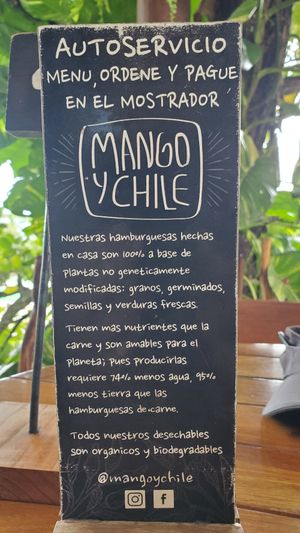 AUTOSERVICIO
MENU, ORDENE Y PAGUE
EN EL MOSTRADOR
MANGO
Y CHILE
Nuestras hamburguesas hechas
en casa son 100% a base de
plantas no geneticamente
modificadas: granos, germinados,
semillas y verduras frescas.
Tienen mas nutrientes que la
carne y son amables para el
planeta; pues producirlas
requiere 74% menos agua, 95%
menos tierra que las
hamburguesas de carne.
Todos nuestros desechables
son organicos y biodegradables
@mangoychile